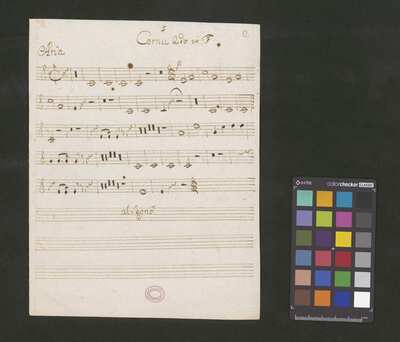 Cornu 2do in F.
Aria
al segno
x-rite
colorchecker CLASSIC